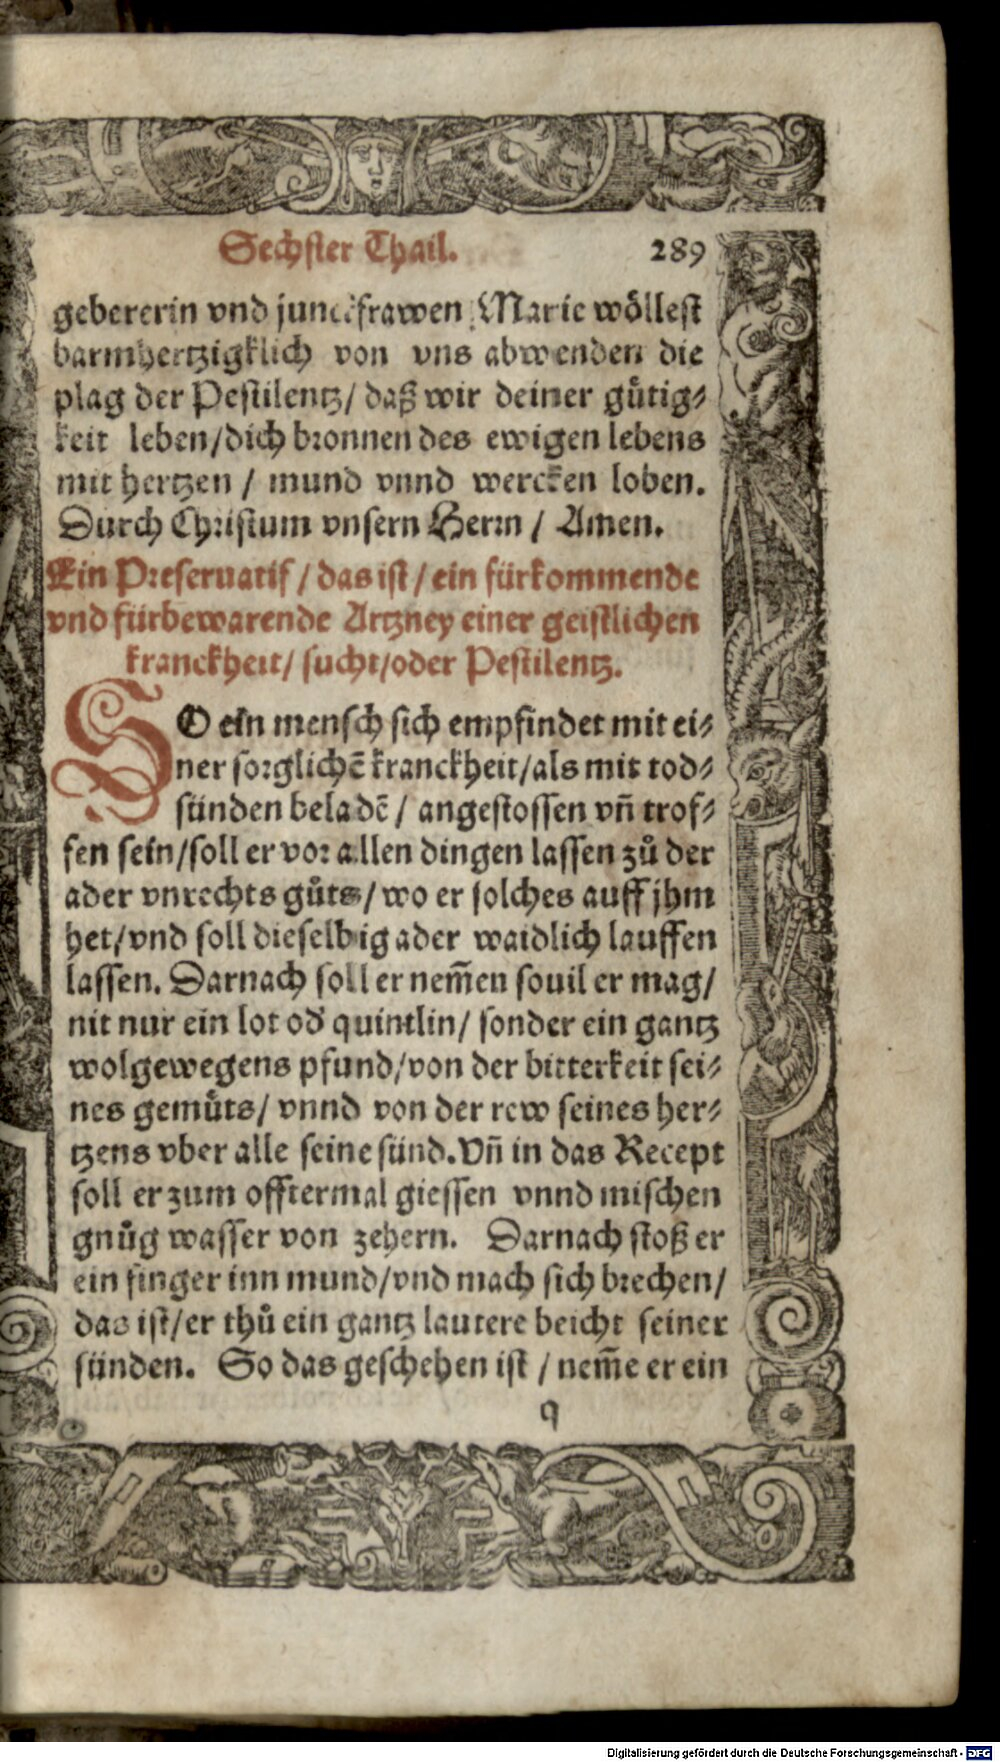 Sechster Thail. 289
gebererin vnd junckfrawen Marie wöllest
barmhertzigklich von vns abwenden die
plag der Pestilentz/ daß wir deiner gůtig⸗
keit leben/dich bronnen des ewigen lebens
mit hertzen / mund vnnd wercken loben.
Durch Christum vnsern Herrn / Amen.
Ein Preseruatif / das ist / ein fürkommende
vnd fürbewarende Artzney einer geistlichen
kranckheit/ sucht/oder Pestilentz.
SO ein mensch sich empfindet mit ei⸗
ner sorglichẽ kranckheit/als mit tod⸗
sünden beladẽ / angestossen vñ trof⸗
fen sein/soll er vor allen dingen lassen zů der
ader vnrechts gůts/wo er solches auff jhm
het/vnd soll dieselbig ader waidlich lauffen
lassen. Darnach soll er nem̃en souil er mag/
nit nur ein lot od' quintlin/ sonder ein gantz
wolgewegens pfund/von der bitterkeit sei⸗
nes gemůts/ vnnd von der rew seines her⸗
tzens vber alle seine sünd. Vñ in das Recept
soll er zum offtermal giessen vnnd mischen
gnůg wasser von zehern. Darnach stoß er
ein finger inn mund/vnd mach sich brechen/
das ist/er thů ein gantz lautere beicht seiner
sünden. So das geschehen ist / nem̃e er ein
q
Digitalisierung gefördert durch die Deutsche Forschungsgemeinschaft - DFG